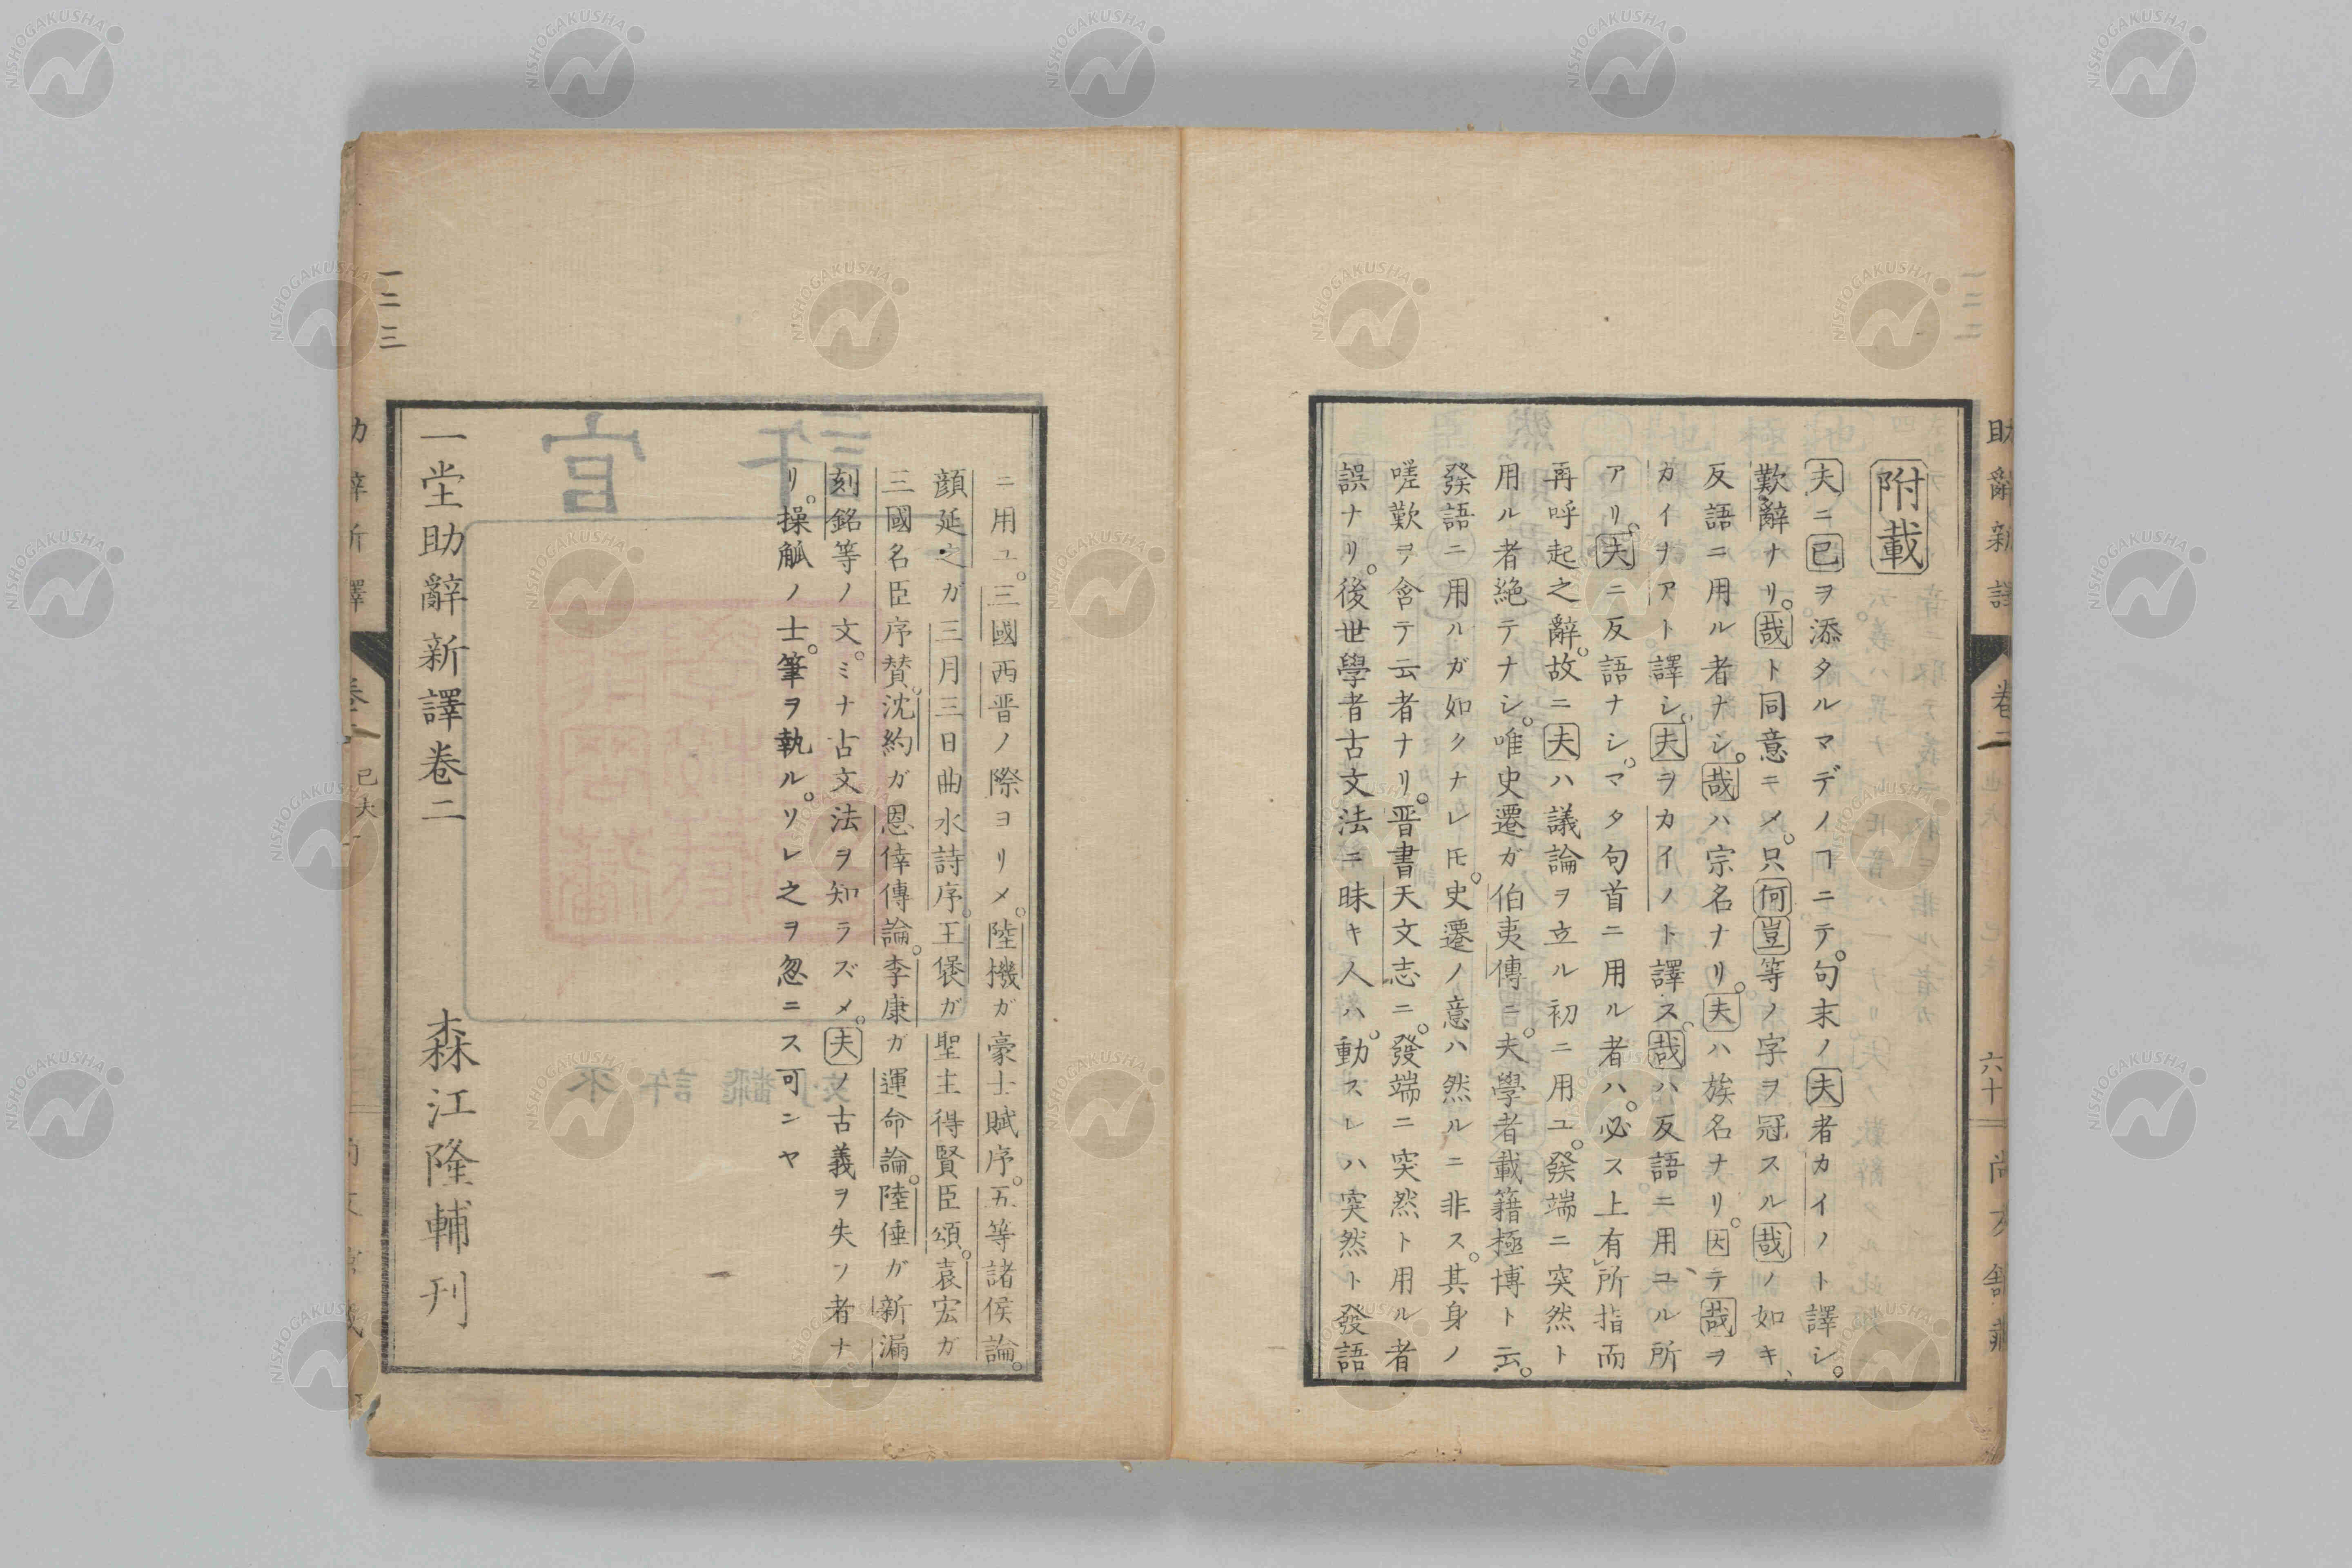 附載
夫ニ已ヲ添タルマデノヿニテ。句末ノ夫者カイノト譯シ。
歎辭ナリ。哉ト同意ニメ。只何豈等ノ字ヲ冠スル哉ノ如キ、
反語ニ用ル者ナシ。哉ハ宗名ナリ。夫ハ族名ナリ。因テ哉ヲ
カイヲアト譯シ。夫ヲカイノト譯ス。哉ハ反語ニ用ユル所
アリ。夫ニ反語ナシ。マタ句首ニ用ル者ハ。必ス上有所指而
再呼起之辭。故ニ夫ハ議論ヲ立ル初ニ用ユ。發端ニ突然ト
用ル者絶テナシ。唯史遷ガ伯夷傳ニ。夫學者載籍極博ト云。
發語ニ用ルガ如クナレ𪜈。史遷ノ意ハ然ルニ非ス。其身ノ
嗟歎ヲ含テ云者ナリ。晋書天文志ニ。發端ニ突然ト用ル者
誤ナリ。後世學者古文法ニ昧キ人ハ。動スレハ突然ト發語
助辭新譯
卷二
六十
尚友舘藏
ニ用ユ。三國西晋ノ際ヨリメ。陸機ガ豪士賦序。五等諸侯論。
顔延之ガ三月三日曲水詩序。王褒ガ聖主得賢臣頌。袁宏ガ
三國名臣序賛。沈約ガ恩倖傳論。李康ガ運命論。陸倕ガ新漏
刻銘等ノ文。ミナ古文法ヲ知ラズメ。夫ノ古義ヲ失フ者ナ
リ。操觚ノ士。筆ヲ執ル。ソレ之ヲ忽ニス可ンヤ
一堂助辭新譯卷二
森江隆輔刊
一二三
NISHOGAKUSHA